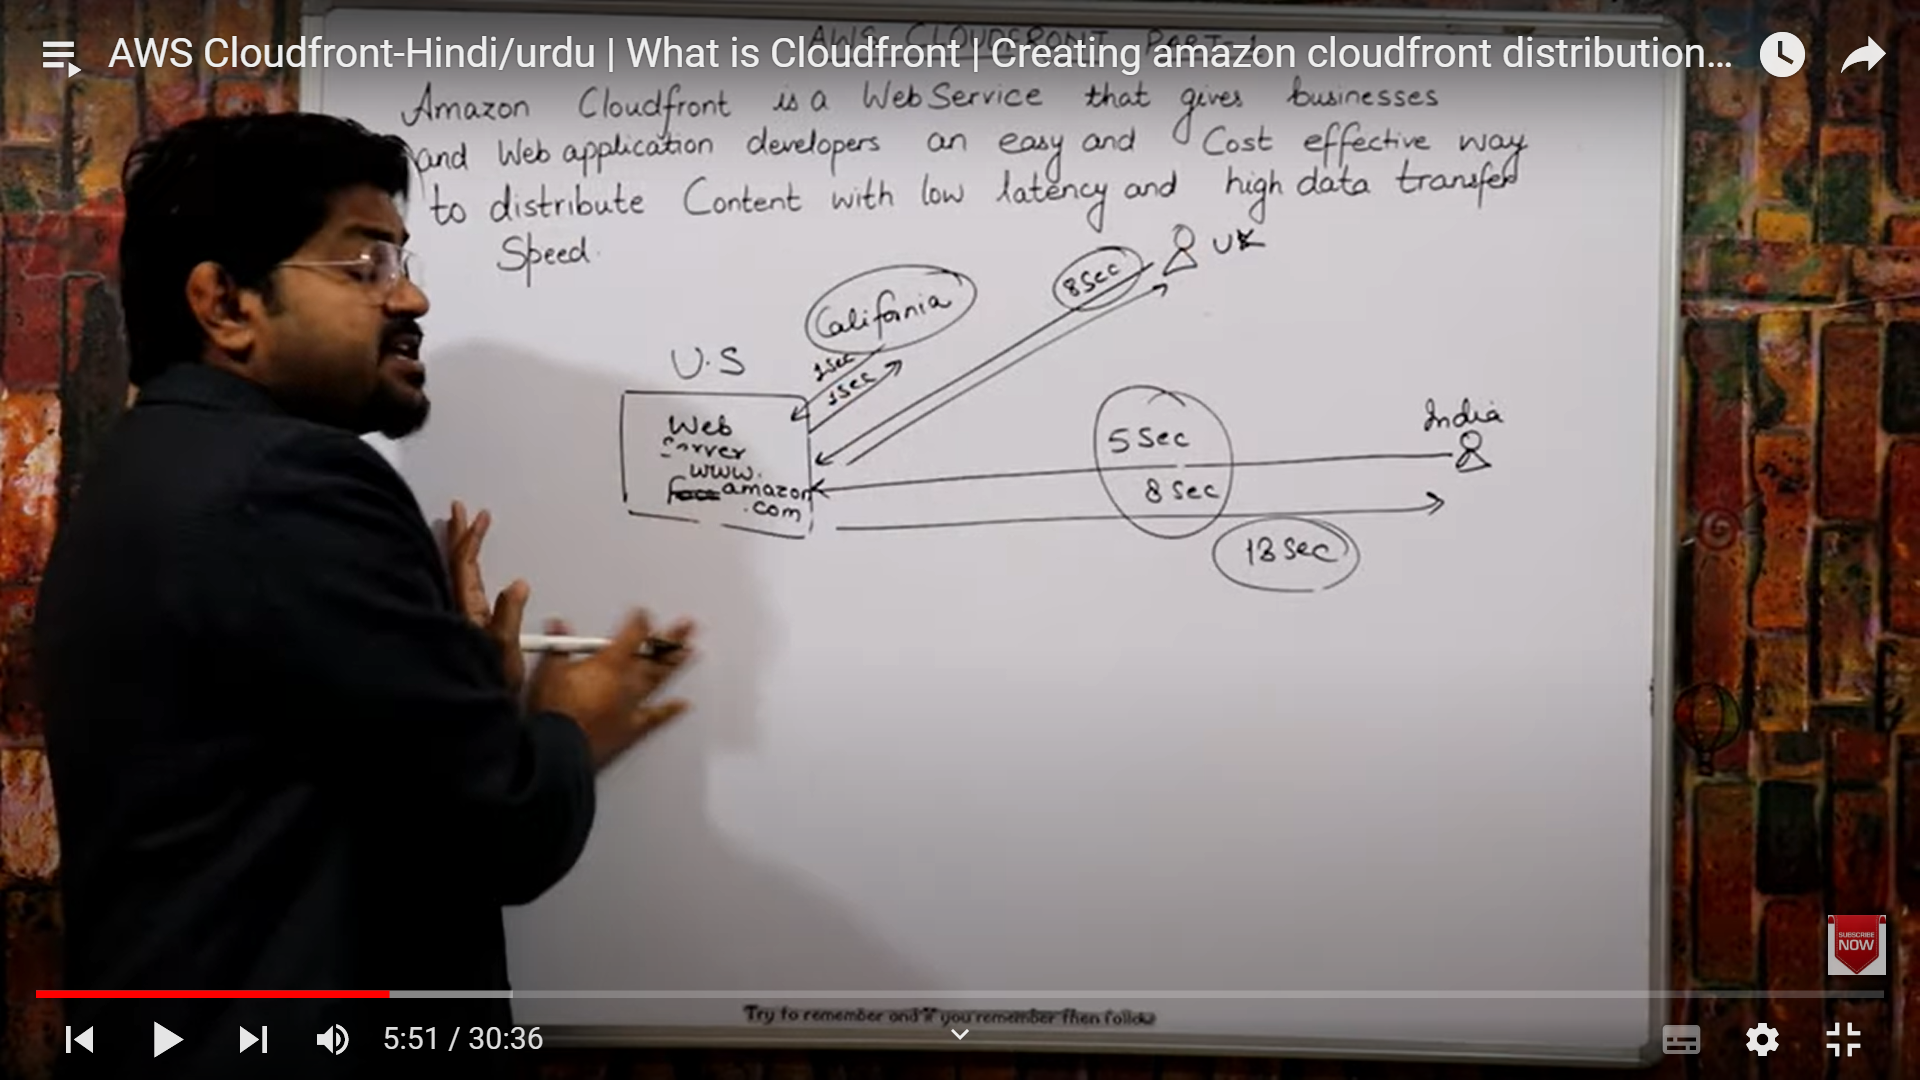 AWS Cloudfront-Hindi/urdu | What is Cloudfront | Creating amazon cloudfront distribution...
AWS CLOUDFRONT PART-1
Amazon Cloudfront is a Web Service that gives businesses
and Web application developers an easy and Cost effective way
to distribute Content with low latency and high data transfer
Speed.
UK
8 Sec
California
U.S
1 Sec
1 Sec
India
Web
Server
www.
amazon
.com
5 Sec
8 Sec
13 Sec
SUBSCRIBE
NOW
Try to remember and if you remember then follow
5:51 / 30:36